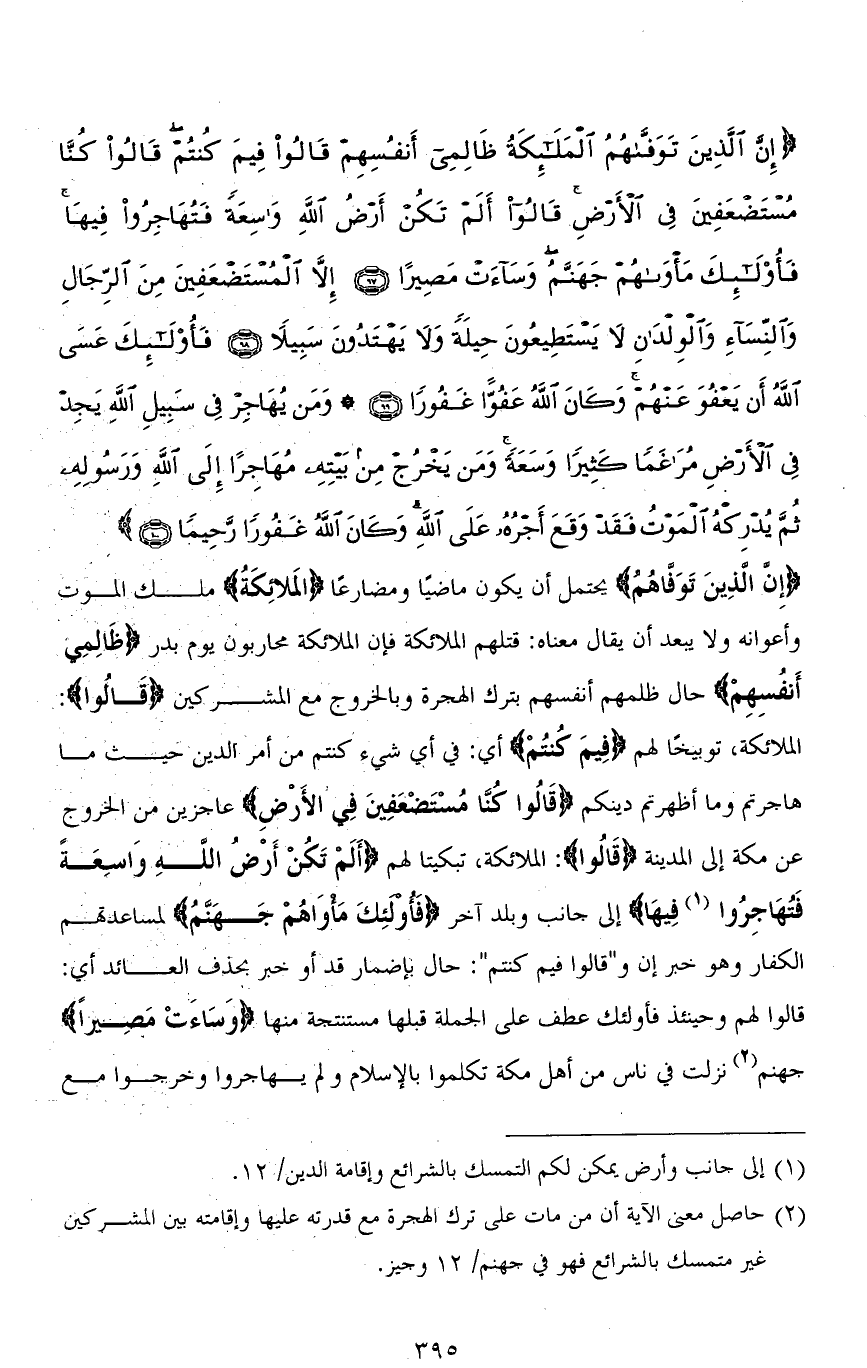 ﴿ إِنَّ ٱلَّذِينَ تَوَفَّىٰهُمُ ٱلْمَلَـٰٓئِكَةُ ظَالِمِىٓ أَنفُسِهِمْ قَالُوا۟ فِيمَ كُنتُمْ ۖ قَالُوا۟ كُنَّا
مُسْتَضْعَفِينَ فِى ٱلْأَرْضِ ۚ قَالُوٓا۟ أَلَمْ تَكُنْ أَرْضُ ٱللَّهِ وَٰسِعَةً فَتُهَاجِرُوا۟ فِيهَا ۚ
فَأُو۟لَـٰٓئِكَ مَأْوَىٰهُمْ جَهَنَّمُ ۖ وَسَآءَتْ مَصِيرًا ٩٧ إِلَّا ٱلْمُسْتَضْعَفِينَ مِنَ ٱلرِّجَالِ
وَٱلنِّسَآءِ وَٱلْوِلْدَٰنِ لَا يَسْتَطِيعُونَ حِيلَةً وَلَا يَهْتَدُونَ سَبِيلًا ٩٨ فَأُو۟لَـٰٓئِكَ عَسَى
ٱللَّهُ أَن يَعْفُوَ عَنْهُمْ ۚ وَكَانَ ٱللَّهُ عَفُوًّا غَفُورًا ٩٩ * وَمَن يُهَاجِرْ فِى سَبِيلِ ٱللَّهِ يَجِدْ
فِى ٱلْأَرْضِ مُرَٰغَمًا كَثِيرًا وَسَعَةً ۚ وَمَن يَخْرُجْ مِنۢ بَيْتِهِۦ مُهَاجِرًا إِلَى ٱللَّهِ وَرَسُولِهِۦ
ثُمَّ يُدْرِكْهُ ٱلْمَوْتُ فَقَدْ وَقَعَ أَجْرُهُۥ عَلَى ٱللَّهِ ۗ وَكَانَ ٱللَّهُ غَفُورًا رَّحِيمًا ١٠٠ ﴾
﴿إِنَّ الَّذِينَ تَوَفَّاهُمُ﴾ يحتمل أن يكون ماضيًا ومضارعًا ﴿الْمَلائِكَةُ﴾ ملك الموت
وأعوانه ولا يبعد أن يقال معناه: قتلهم الملائكة فإن الملائكة محاربون يوم بدر ﴿ظَالِمِي
أَنفُسِهِمْ﴾ حال ظلمهم أنفسهم بترك الهجرة وبالخروج مع المشركين ﴿قَالُوا﴾:
الملائكة، توبيخًا لهم ﴿فِيمَ كُنتُمْ﴾ أي: في أي شيء كنتم من أمر الدين حيث ما
هاجرتم وما أظهرتم دينكم ﴿قَالُوا كُنَّا مُسْتَضْعَفِينَ فِي الأَرْضِ﴾ عاجزين من الخروج
عن مكة إلى المدينة ﴿قَالُوا﴾: الملائكة، تبكيتا لهم ﴿أَلَمْ تَكُنْ أَرْضُ اللَّهِ وَاسِعَةً
فَتُهَاجِرُوا (١) فِيهَا﴾ إلى جانب وبلد آخر ﴿فَأُوْلَئِكَ مَأْوَاهُمْ جَهَنَّمُ﴾ لمساعدتهم
الكفار وهو خبر إن و"قالوا فيم كنتم": حال بإضمار قد أو خبر بحذف العائد أي:
قالوا لهم وحينئذ فأولئك عطف على الجملة قبلها مستنتجة منها ﴿وَسَاءَتْ مَصِيراً﴾
جهنم(٢) نزلت في ناس من أهل مكة تكلموا بالإسلام ولم يهاجروا وخرجوا مع
(١) إلى جانب وأرض يمكن لكم التمسك بالشرائع وإقامة الدين/ ١٢.
(٢) حاصل معنى الآية أن من مات على ترك الهجرة مع قدرته عليها وإقامته بين المشركين
غير متمسك بالشرائع فهو في جهنم/ ١٢ وجيز.
٣٩٥